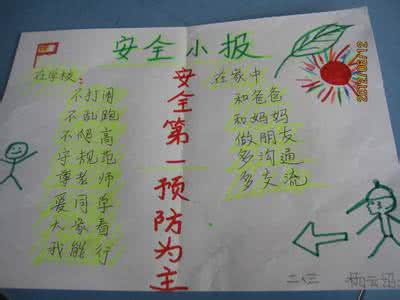 安全小报
在学校：
不打闹
不乱跑
不爬高
守规范
尊老师
爱同学
大家看
我能行
安全第一预防为主
在家中
和爸爸
和妈妈
做朋友
多沟通
多交流